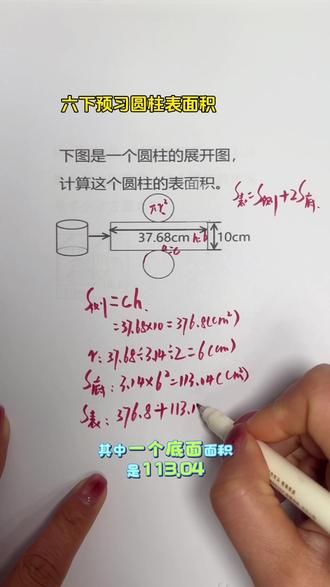 六下预习圆柱表面积
下图是一个圆柱的展开图，
计算这个圆柱的表面积。
S表=S侧+2S底
πr²
37.68cm
h=b
10cm
a=c
S侧=Ch
=37.68×10=376.8(cm²)
r:37.68÷3.14÷2=6(cm)
S底:3.14×6²=113.04(cm²)
S表:376.8+113.
其中一个底面面积
是113.04